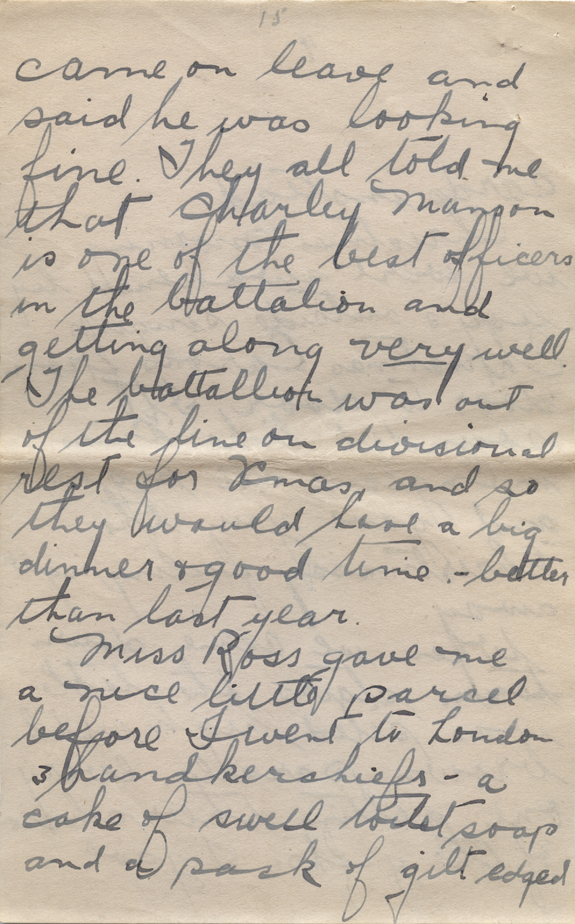 15
came on leave and
said he was looking
fine. They all told me
that Charley Manson
is one of the best officers
in the battalion and
getting along very well.
The battallion was out
of the line on divisional
rest for Xmas, and so
they would have a big
dinner & good time. - better
than last year.
Miss Ross gave me
a nice little parcel
before I went to London
3 handkerchiefs - a
cake of swell toilet soap
and a pack of gilt edged